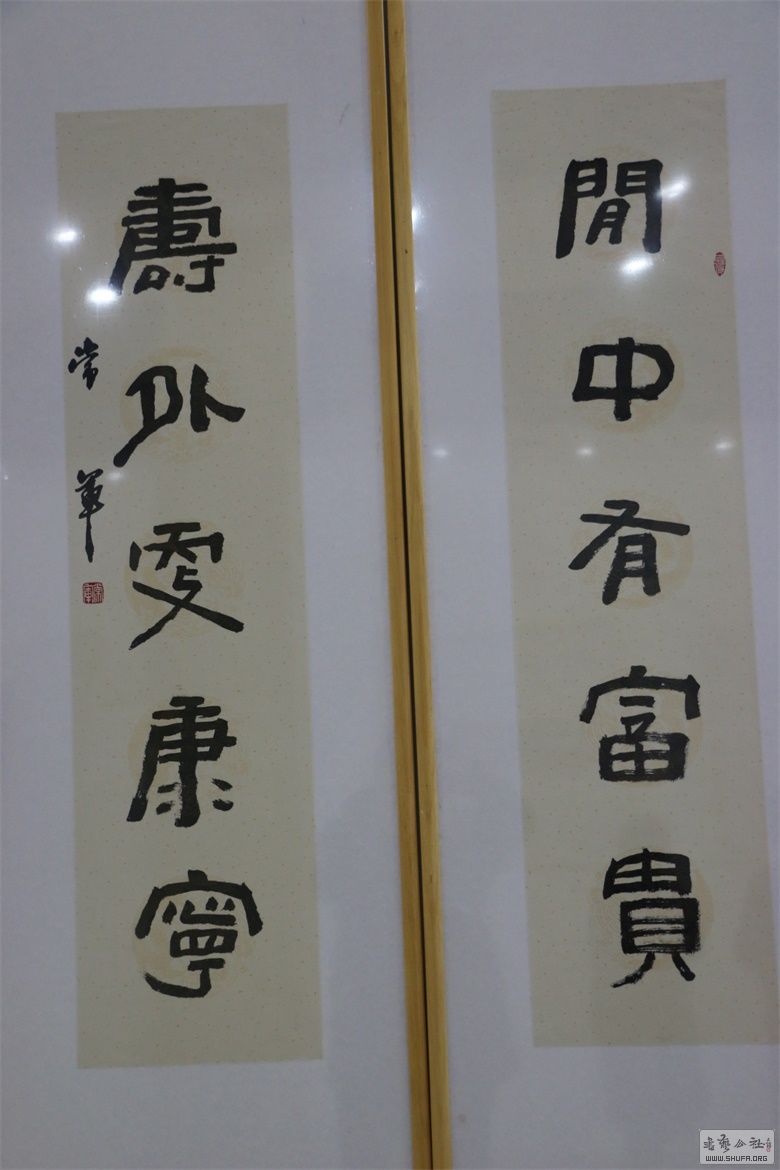 閒中有富貴
壽外更康寧
常军
WWW.SHUFA.ORG